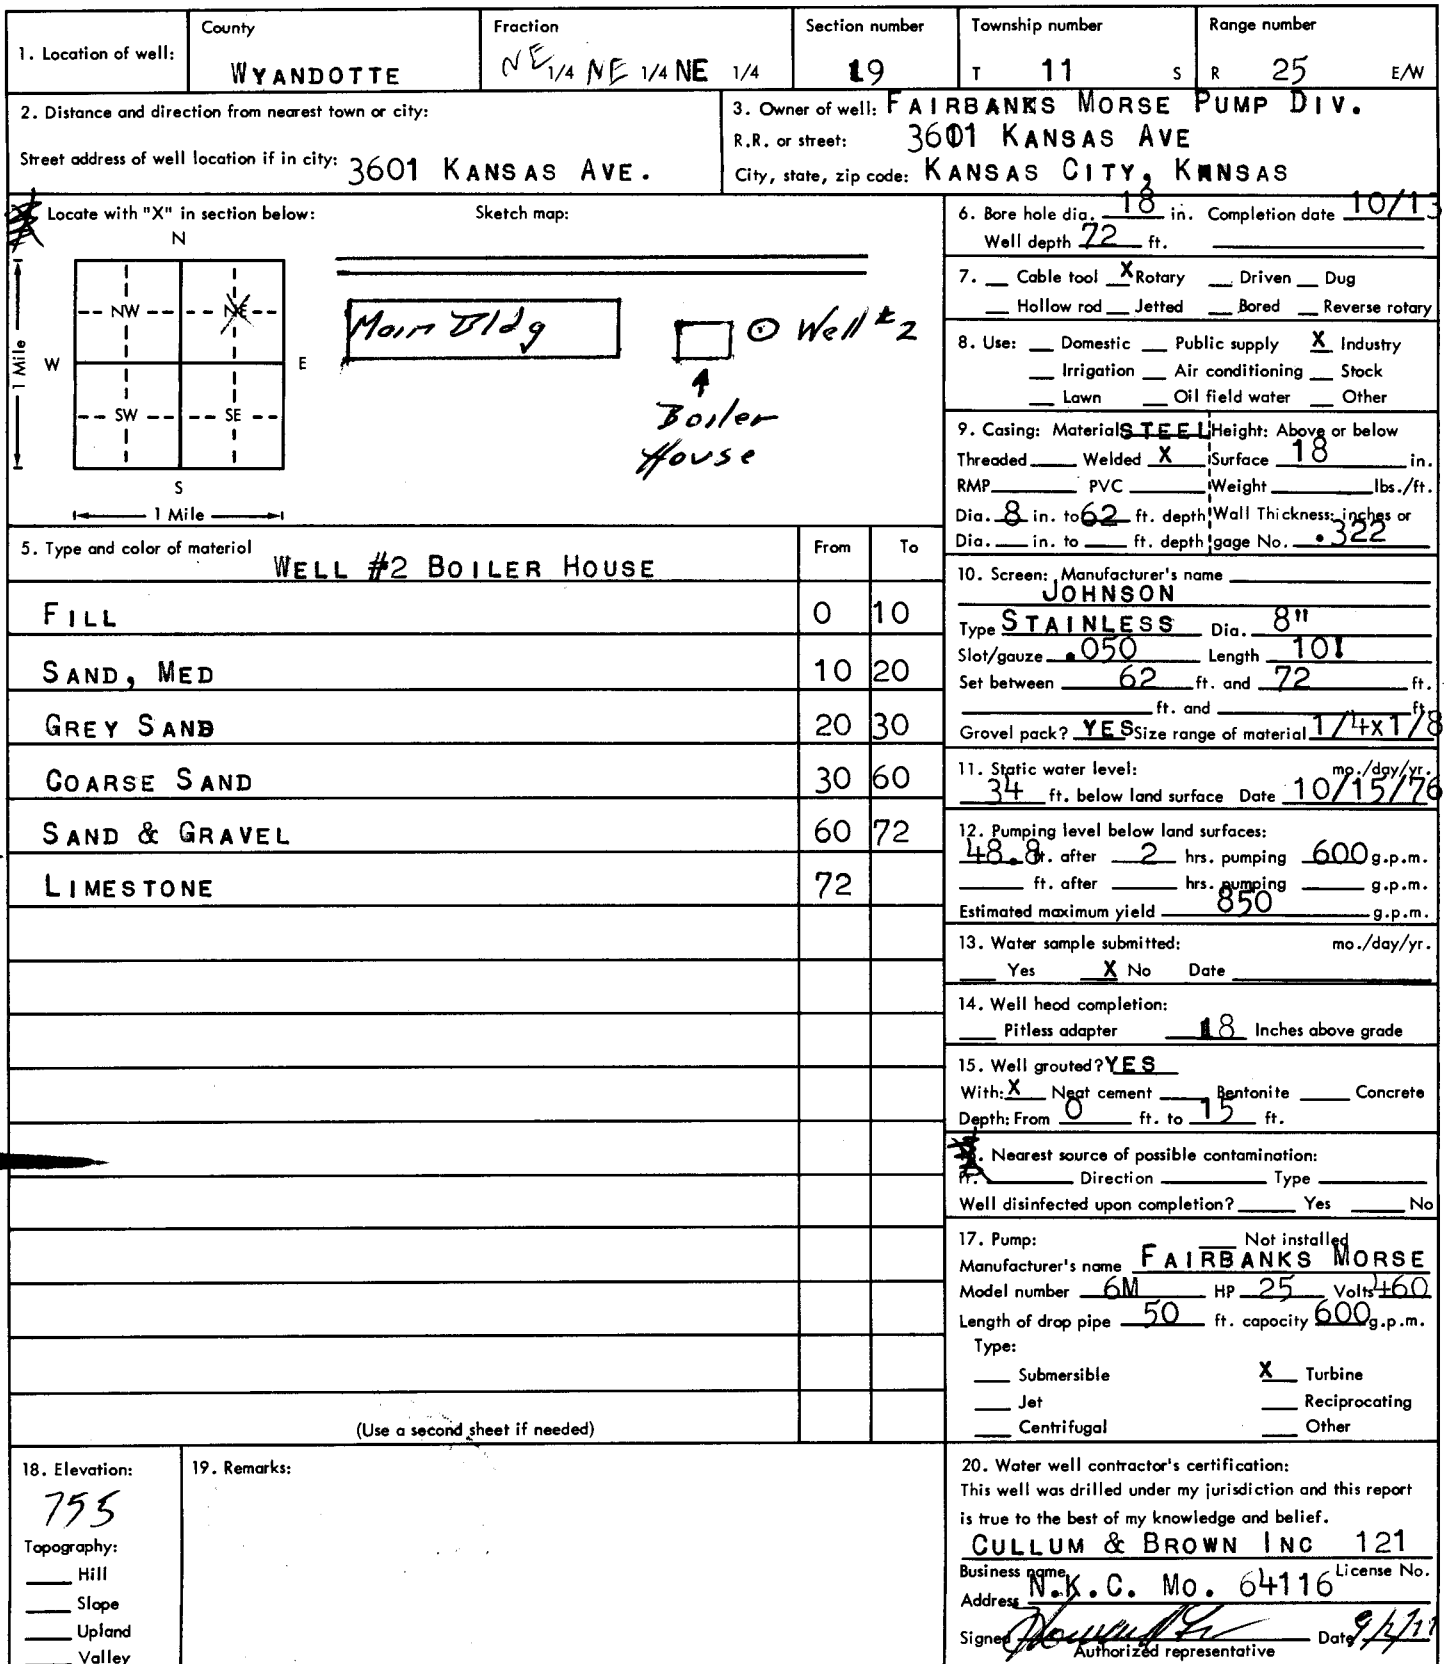 1. Location of well:
County
WYANDOTTE
Fraction
NE 1/4 NE 1/4 NE 1/4
Section number
19
Township number
T 11 S
Range number
R 25 E/W
2. Distance and direction from nearest town or city:
Street address of well location if in city: 3601 KANSAS AVE.
3. Owner of well: FAIRBANKS MORSE PUMP DIV.
R.R. or street: 3601 KANSAS AVE
City, state, zip code: KANSAS CITY, KANSAS
Locate with "X" in section below:
Sketch map:
N
NW NE
W E
SW SE
S
1 Mile
1 Mile
X
Main Bldg
Well #2
Boiler
House
5. Type and color of material From To
WELL #2 BOILER HOUSE
FILL 0 10
SAND, MED 10 20
GREY SAND 20 30
COARSE SAND 30 60
SAND & GRAVEL 60 72
LIMESTONE 72
(Use a second sheet if needed)
6. Bore hole dia. 18 in. Completion date 10/13
Well depth 72 ft.
7. Cable tool X Rotary Driven Dug
Hollow rod Jetted Bored Reverse rotary
8. Use: Domestic Public supply X Industry
Irrigation Air conditioning Stock
Lawn Oil field water Other
9. Casing: Material STEEL Height: Above or below
Threaded Welded X Surface 18 in.
RMP PVC Weight lbs./ft.
Dia. 8 in. to 62 ft. depth Wall Thickness: inches or
Dia. in. to ft. depth gage No. .322
10. Screen: Manufacturer's name
JOHNSON
Type STAINLESS Dia. 8"
Slot/gauze .050 Length 10'
Set between 62 ft. and 72 ft.
ft. and ft.
Gravel pack? YES Size range of material 1/4x1/8
11. Static water level: mo./day/yr.
34 ft. below land surface Date 10/15/76
12. Pumping level below land surfaces:
48.8 ft. after 2 hrs. pumping 600 g.p.m.
ft. after hrs. pumping g.p.m.
Estimated maximum yield 850 g.p.m.
13. Water sample submitted: mo./day/yr.
Yes X No Date
14. Well head completion:
Pitless adapter 18 Inches above grade
15. Well grouted? YES
With: X Neat cement Bentonite Concrete
Depth: From 0 ft. to 15 ft.
Nearest source of possible contamination:
ft. Direction Type
Well disinfected upon completion? Yes No
17. Pump: Not installed
Manufacturer's name FAIRBANKS MORSE
Model number 6M HP 25 Volts 460
Length of drop pipe 50 ft. capacity 600 g.p.m.
Type:
Submersible X Turbine
Jet Reciprocating
Centrifugal Other
18. Elevation:
755
Topography:
Hill
Slope
Upland
Valley
19. Remarks:
20. Water well contractor's certification:
This well was drilled under my jurisdiction and this report
is true to the best of my knowledge and belief.
CULLUM & BROWN INC 121
Business name License No.
Address N.K.C. MO. 64116
Signed Date
Authorized representative